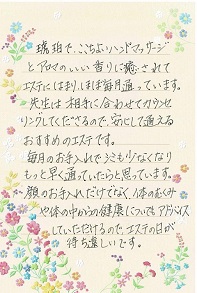 琥珀で、ここちよいハンドマッサージ
とアロマのいい香りに癒されて
エステにはまり、ほぼ毎月通っています。
先生は相手に合わせてカウンセ
リングしてくださるので、安心して通える
おすすめのエステです。
毎月のお手入れでシミも少なくなり
もっと早く通っていたらと思っています。
顔のお手入れだけでなく、体のむくみ
や体の中からの健康についてもアドバイス
していただけるので、エステの日が
待ち遠しいです。